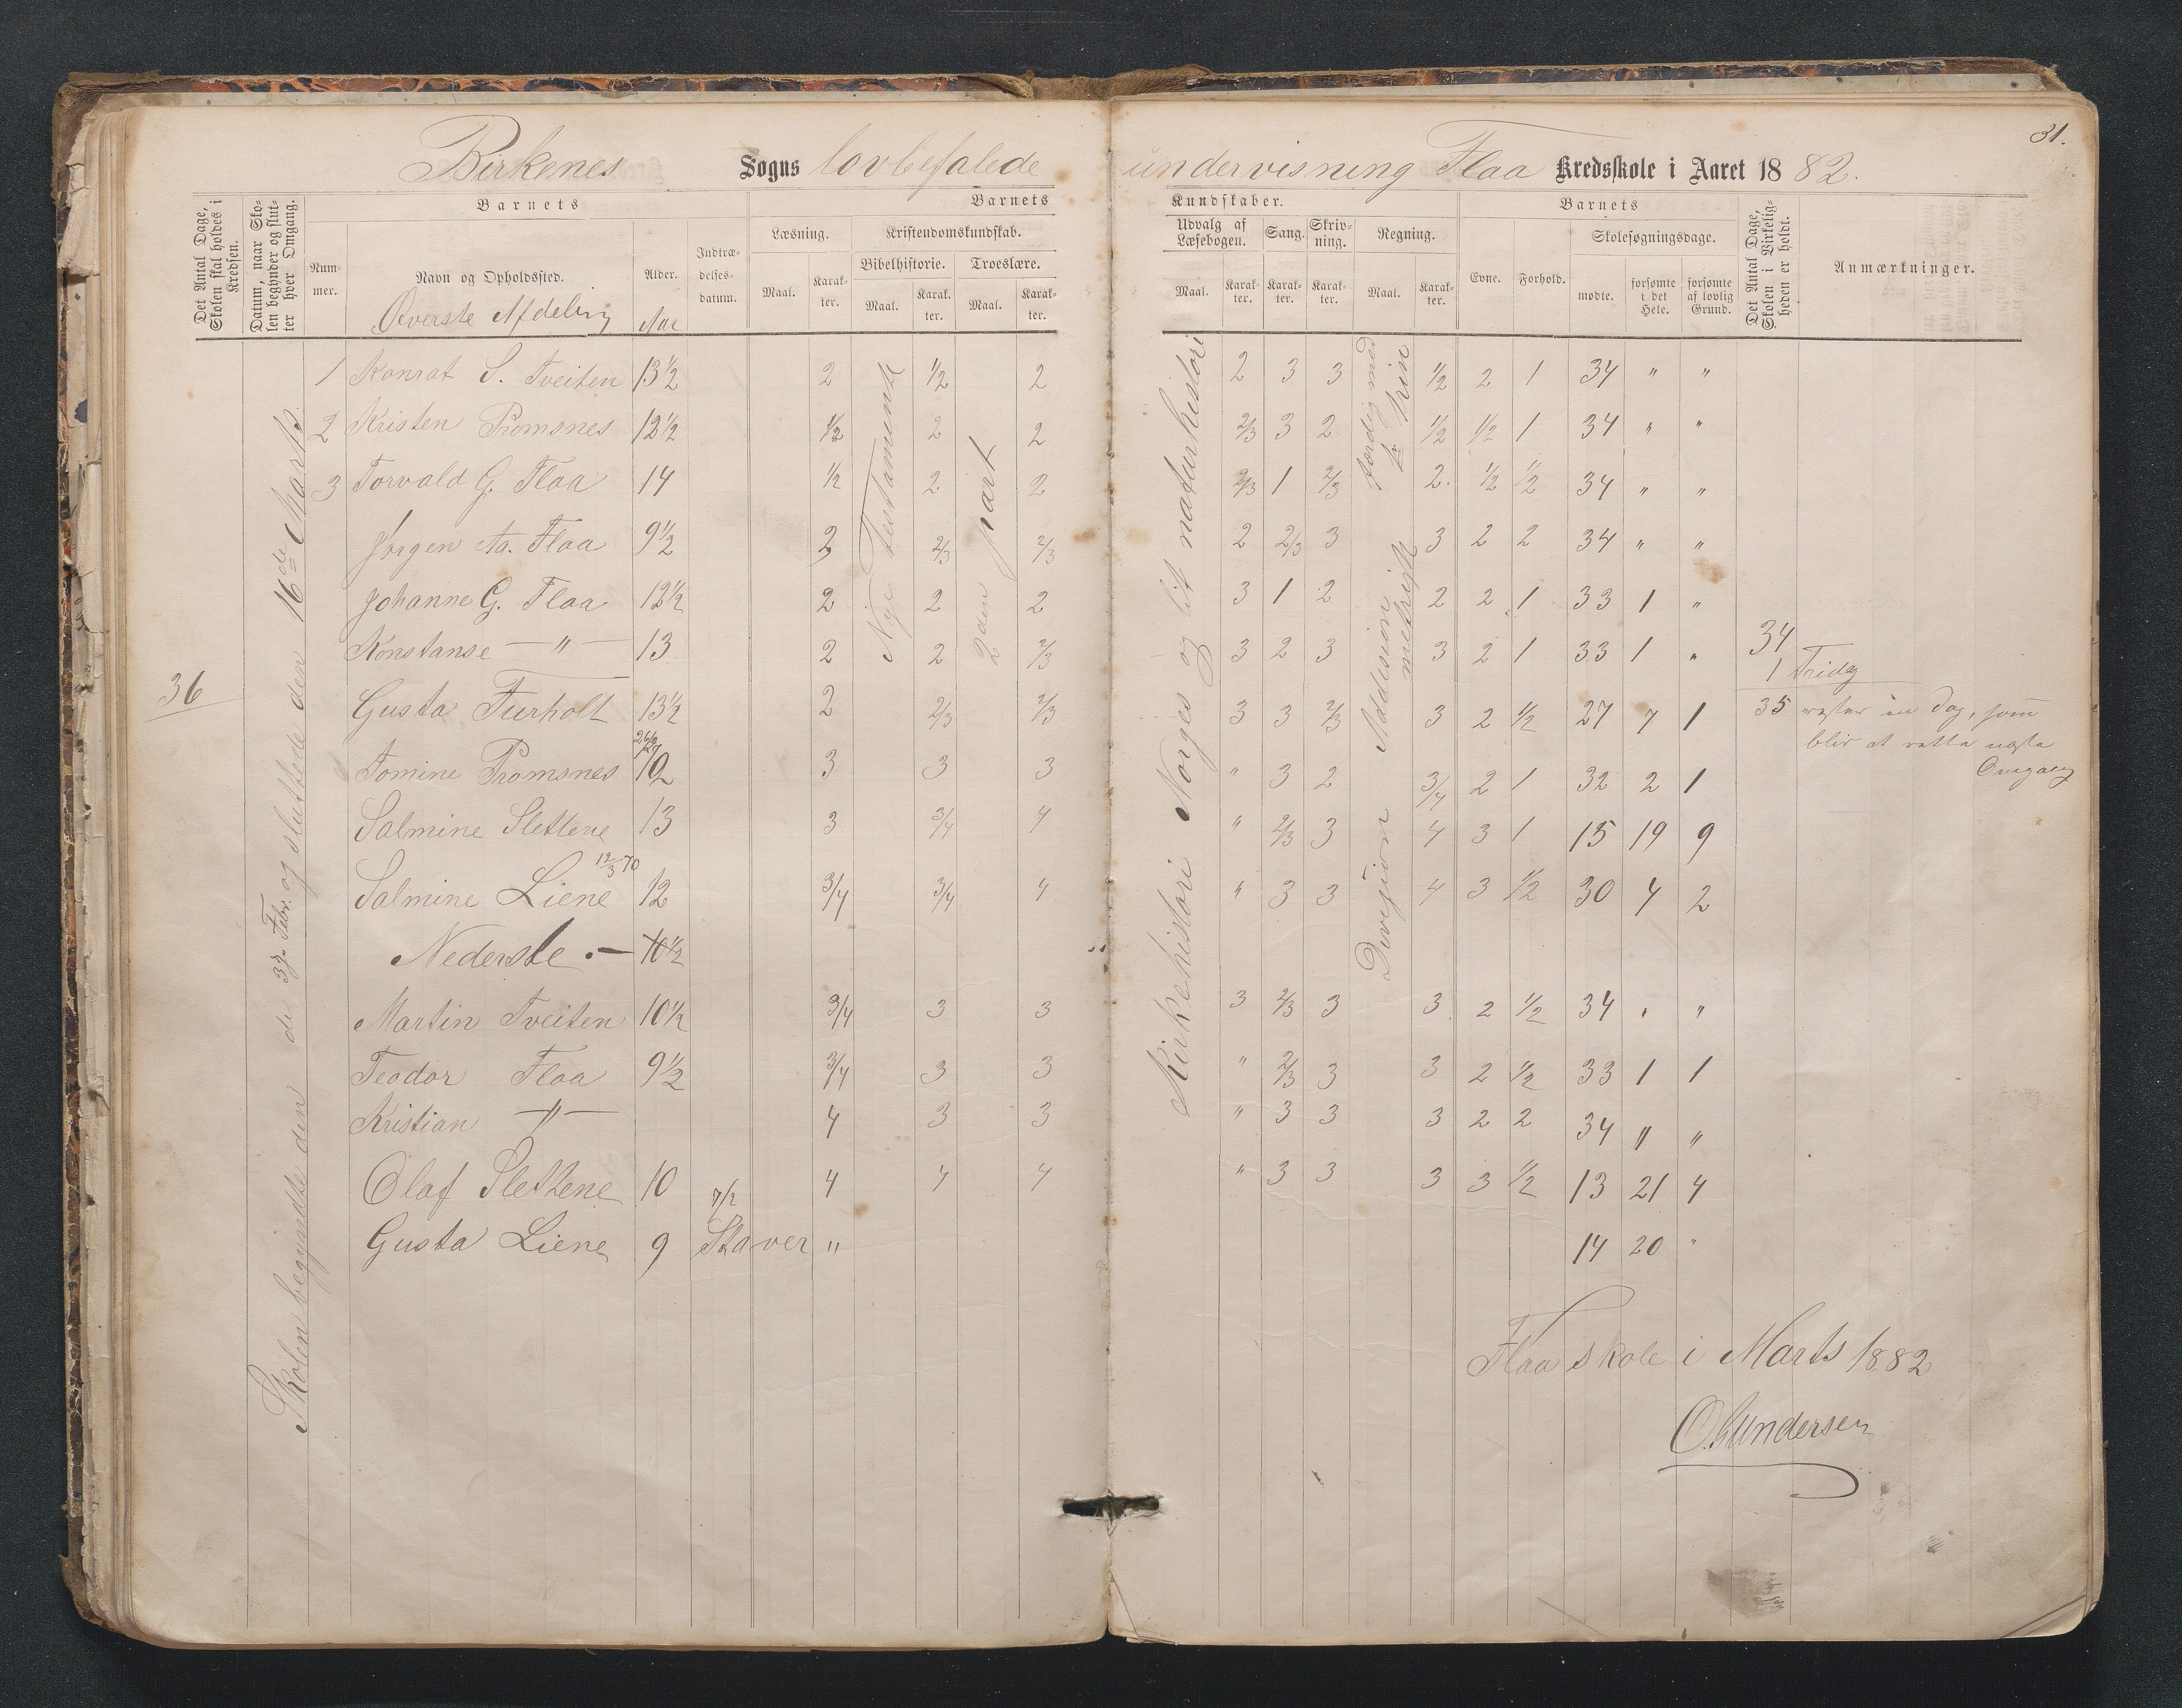 31.
Birkenes Sogns lovbefalede undervisning Flaa Kredsskole i Aaret 1882.
Det Antal Dage, Skolen skal holdes i Kredsen.
Datum, naar Skolen begynder og slutter hver Omgang.
Barnets
Nummer.
Navn og Opholdssted.
Øverste Afdeling
Alder.
Aar
Indtrædelsesdatum.
Barnets Kundskaber.
Læsning.
Maal. Karakter.
Kristendomskundskab.
Bibelhistorie. Troeslære.
Maal. Karakter. Maal. Karakter.
Udvalg af Læsebogen.
Maal. Karakter.
Sang. Karakter.
Skrivning. Karakter.
Regning.
Maal. Karakter.
Barnets
Evne. Forhold.
Skolesøgningsdage.
mødte. forsømte i det Hele. forsømte af lovlig Grund.
Det Antal Dage, Skolen i Virkeligheden er holdt.
Anmærkninger.
36
Skolen begyndte den de 3dje Febr. og sluttede den 16de Marts.
Nye Testamente
2den part
Kirkehistori Norges og lit naturhistori
færdig med
Addision
Divisjon
1 Konrat S. Tveiten 13½ 2 ½ 2 2 3 3 ½ 2 1 34 " "
2 Kristen Promsnes 12½ ½ 2 2 2/3 3 2 ½ ½ 1 34 " "
3 Torvald G. Flaa 14 ½ 2 2 2/3 1 2/3 2. ½ ½ 34 " "
Jørgen Aa. Flaa 9½ 2 2/3 2/3 2 2/3 3 3 2 2 34 " "
Johanne G. Flaa 12½ 2 2 2 3 1 2 2 2 1 33 1 "
Konstanse — " — 13 2 2 2/3 3 2 3 3 2 1 33 1 "
34
1 Fridag
Gusta Furholt 13½ 2 2/3 2/3 3 3 2/3 3 2 ½ 27 7 1
35 rester en Dag, som
blir at rette næste
Omgang
Tomine Promsnes 10 3 3 3 " 3 2 3/4 2 1 32 2 1
Salmine Slettene 13 3 3/4 4 " 2/3 3 4 3 1 15 19 9
12/3 70
Salmine Liene 12 3/4 3/4 4 " 3 3 4 3 ½ 30 4 2
Nederste .— 10½
Martin Tveiten 10½ 3/4 3 3 3 2/3 3 3 2 ½ 34 " "
Teodor Flaa 9½ 3/4 3 3 " 2/3 3 3 2 ½ 33 1 1
Kristian — " — 4 3 3 " 3 3 3 2 2 34 " "
Olaf Slettene 10 4 4 4 " 3 3 3 3 ½ 13 21 4
7/2
Gusta Liene 9 Staver " 14 20 "
Flaa skole i Marts 1882
O. Gundersen